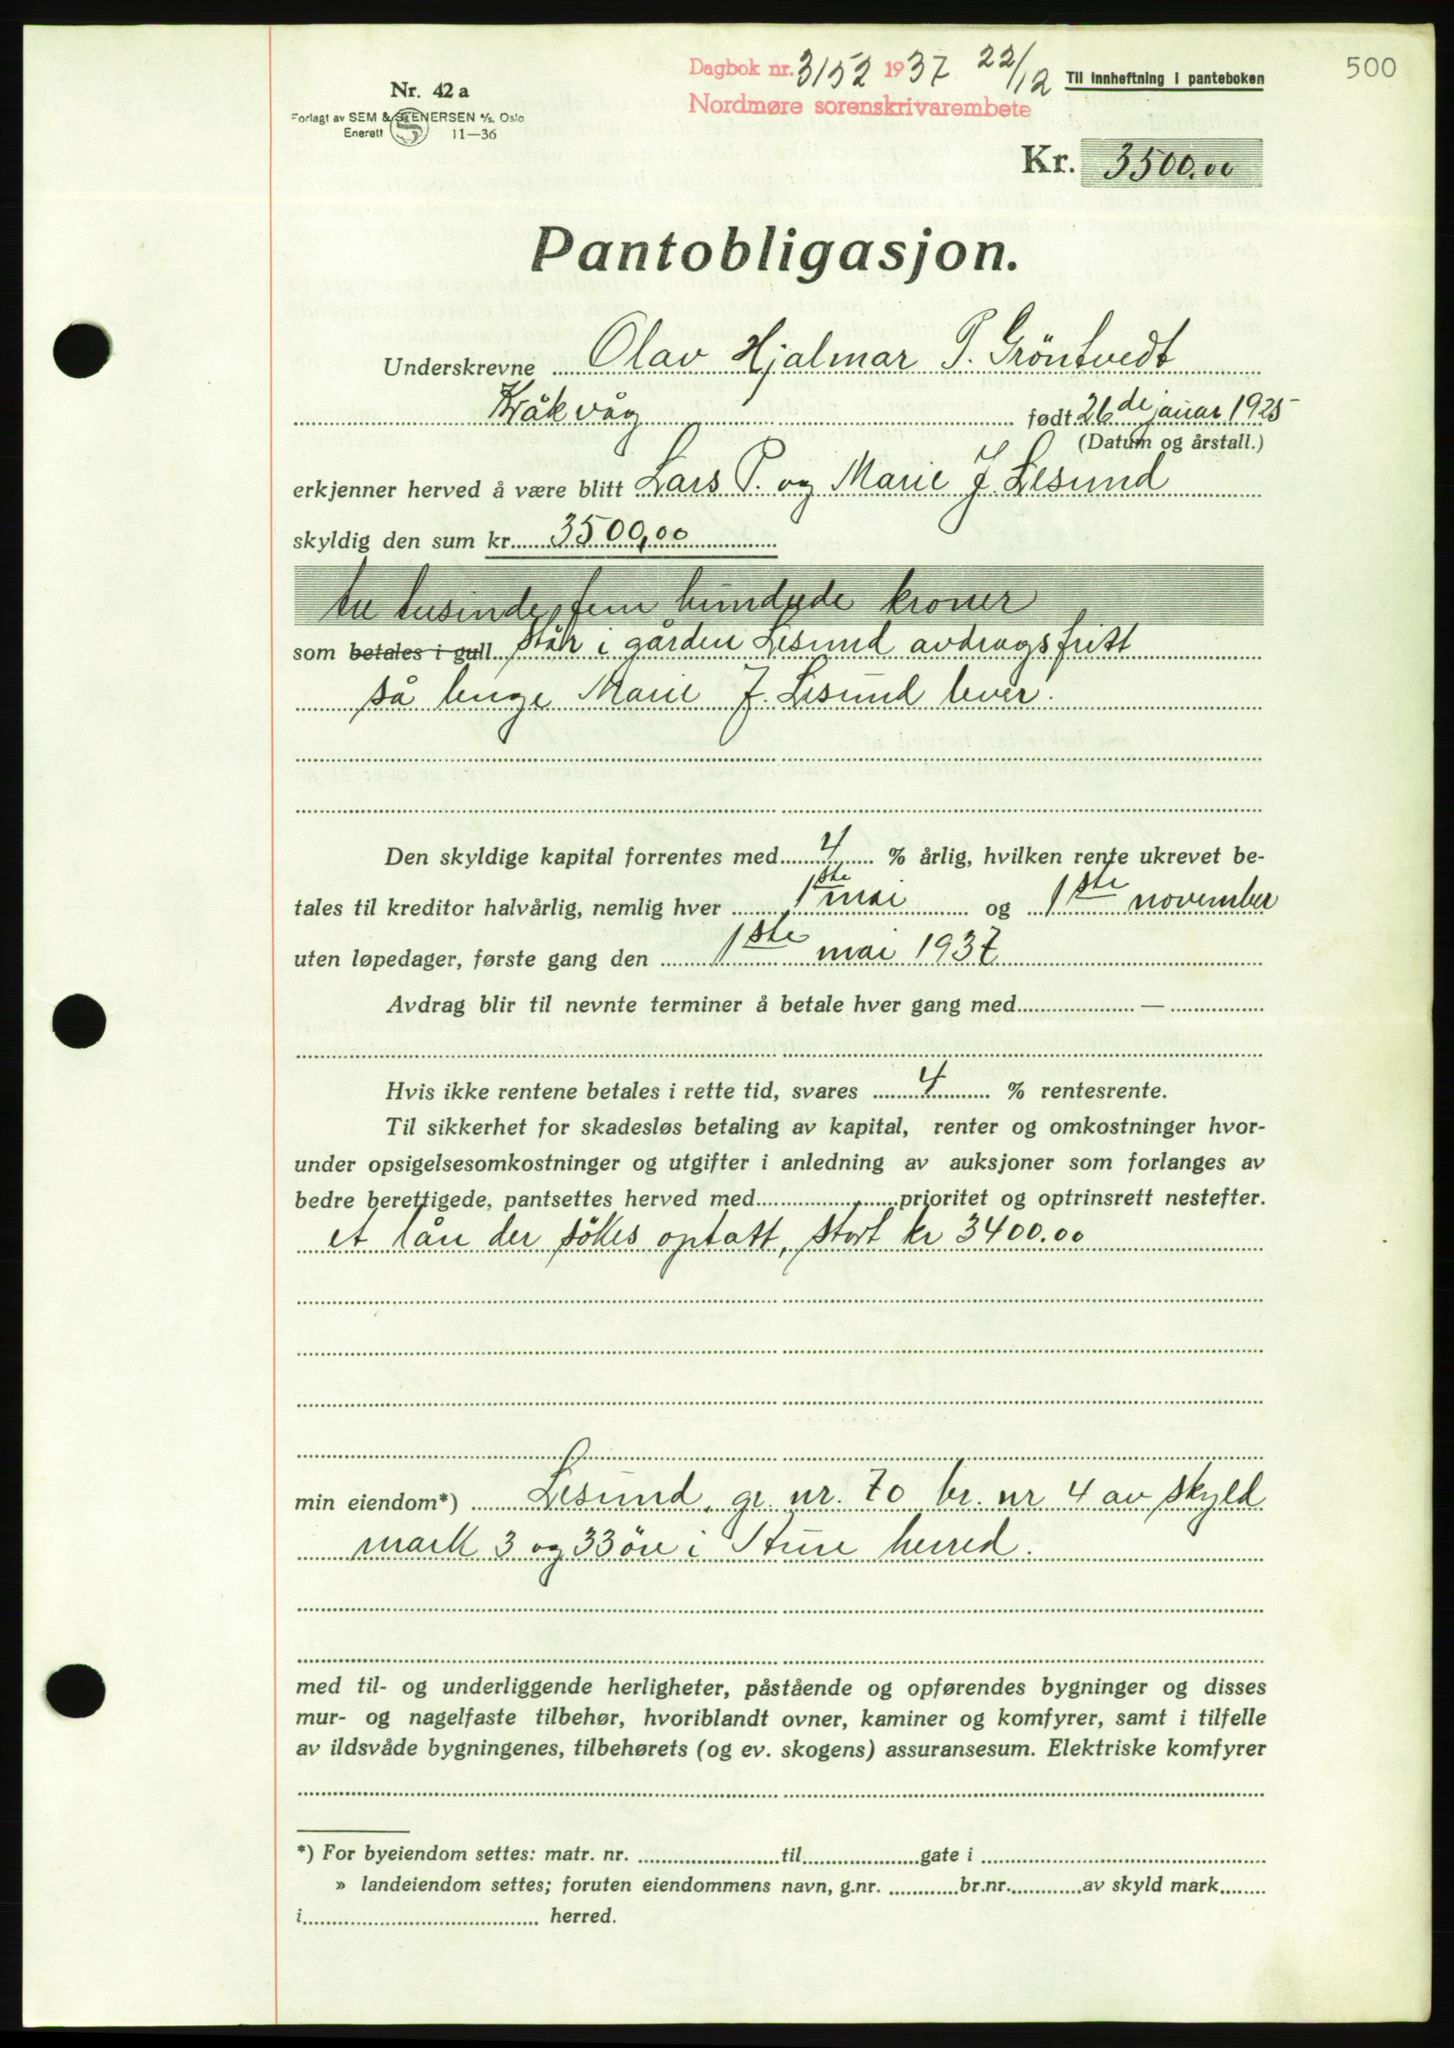 500
Dagbok nr. 3152 1937 22/12
Til innheftning i panteboken
Nordmøre sorenskrivarembete
Nr. 42 a
Forlagt av SEM & STENERSEN A/S. Oslo
Enerett 11—36
Kr. 3500.00
Pantobligasjon.
Underskrevne Olav Hjalmar P. Gröntvedt
Kråkvåg født 26de januar 1925
(Datum og årstall.)
erkjenner herved å være blitt Lars P. og Marie J. Lesund
skyldig den sum kr. 3500,00
tre tusinde fem hundrede kroner
som betales i gull står i gården Lesund avdragsfritt
så lenge Marie J. Lesund lever.
Den skyldige kapital forrentes med 4 % årlig, hvilken rente ukrevet be-
tales til kreditor halvårlig, nemlig hver 1ste mai og 1ste november
uten løpedager, første gang den 1ste mai 1937
Avdrag blir til nevnte terminer å betale hver gang med —
Hvis ikke rentene betales i rette tid, svares 4 % rentesrente.
Til sikkerhet for skadesløs betaling av kapital, renter og omkostninger hvor-
under opsigelsesomkostninger og utgifter i anledning av auksjoner som forlanges av
bedre berettigede, pantsettes herved med prioritet og optrinsrett nestefter.
et lån der sökes optatt, stort kr 3400.00
min eiendom*) Lesund, gr. nr. 70 br. nr 4 av skyld
mark 3 og 33 öre i Sture herred.
med til- og underliggende herligheter, påstående og opførendes bygninger og disses
mur- og nagelfaste tilbehør, hvoriblandt ovner, kaminer og komfyrer, samt i tilfelle
av ildsvåde bygningenes, tilbehørets (og ev. skogens) assuransesum. Elektriske komfyrer
*) For byeiendom settes: matr. nr. til gate i
» landeiendom settes; foruten eiendommens navn, g.nr. br.nr. av skyld mark
i herred.